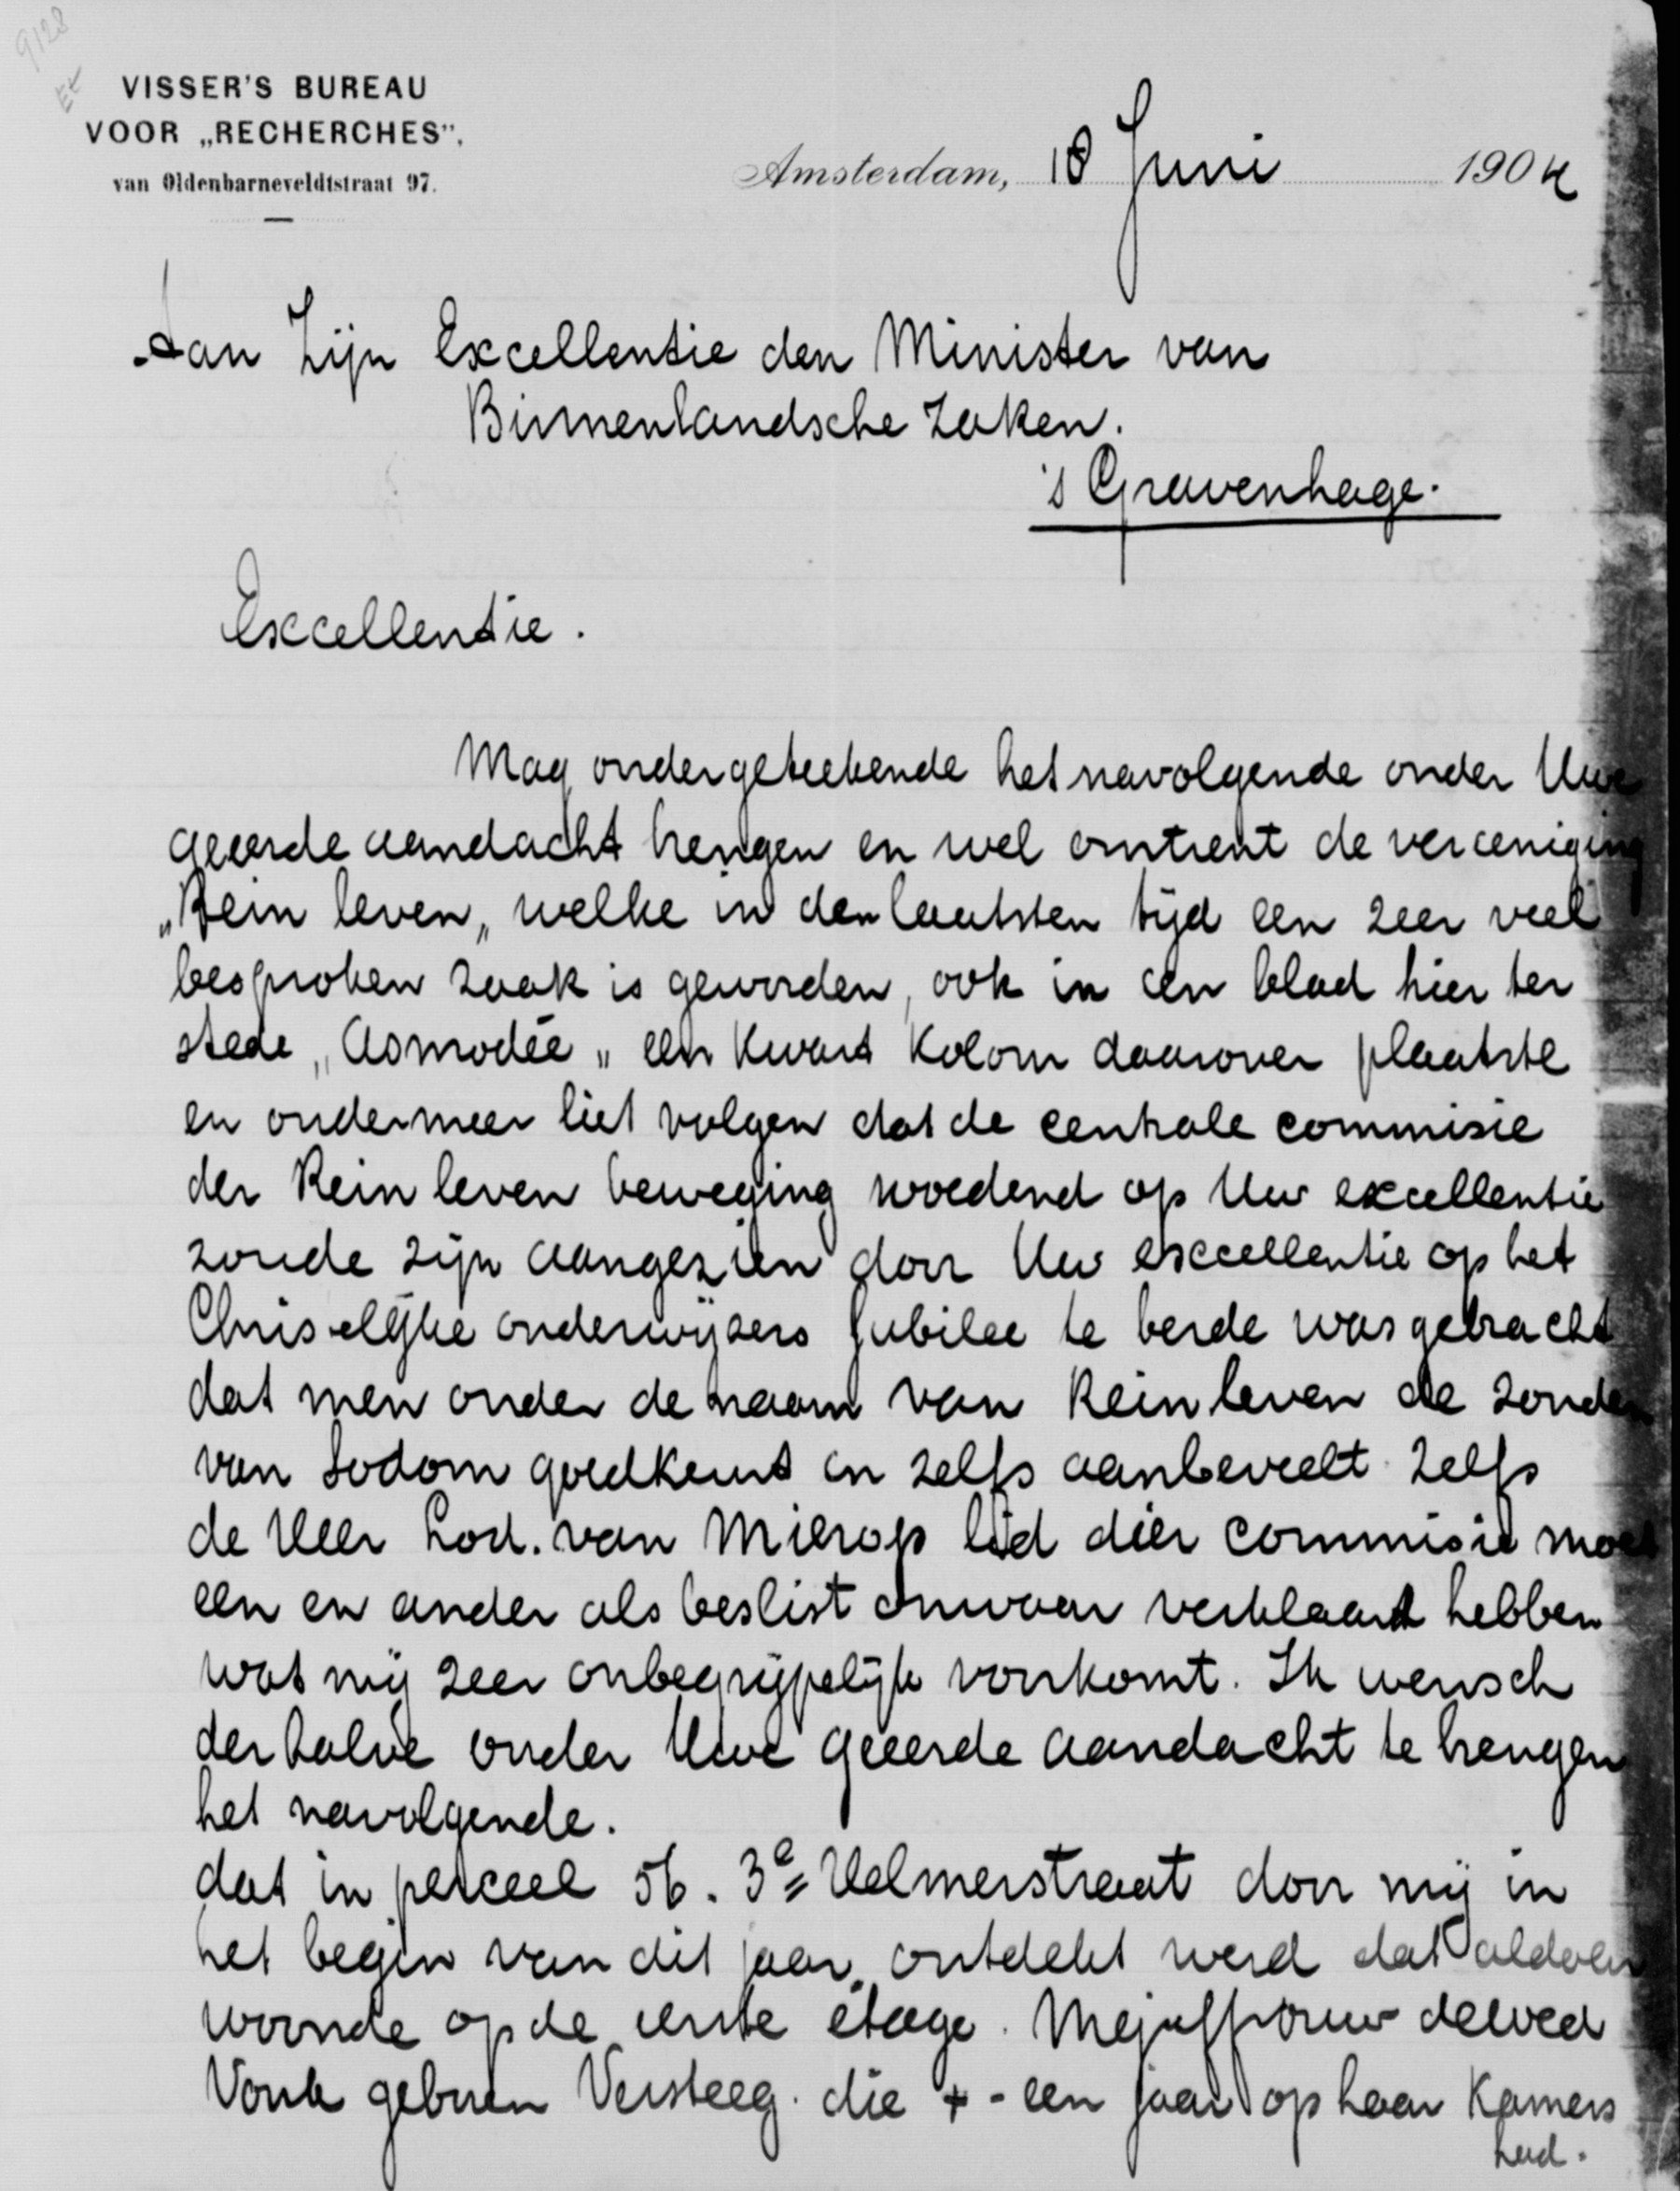 9128
VISSER'S BUREAU
VOOR „RECHERCHES”,
van Oldenbarneveldtstraat 97.
Amsterdam, 18 Juni 1904
Aan Zijn Excellentie den Minister van
Binnenlandsche Zaken.
's Gravenhage.
Excellentie.
Mag ondergeteekende het navolgende onder Uwe
geeerde aandacht brengen en wel omtrent de vereeniging
„Rein leven„ welke in den laatsten tijd een zeer veel
besproken zaak is geworden, ook in een blad hier ter
stede „Asmodée„ een kwart kolom daarover plaatste
en ondermeer liet volgen dat de centrale commisie
der Rein leven beweging woedend op Uw excellentie
zoude zijn aangezien door Uw excellentie op het
Chriselijke onderwijzers Jubilee te berde was gebracht
dat men onder de naam van Rein leven de zonden
van Sodom goedkeurt en zelfs aanbeveelt. Zelfs
de Heer Lod. van Mierop lid dier commisie moet
een en ander als beslist onwaar verklaard hebben
wat mij zeer onbegrijpelijk voorkomt. Ik wensch
derhalve onder Uwe geeerde aandacht te brengen
het navolgende.
dat in perceel 56. 3e Helmerstraat door mij in
het begin van dit jaar ontdekt werd dat aldaar
woonde op de eerste étage. Mejuffrouw de wed
Vonk geboren Versteeg. die + - een jaar op haar Kamers
had.